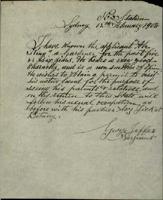 No 2 Station
Sydney
12th February 1906
I have known the applicant Ah
a Gardener for the past five
or six years. He bears a very good
character, and is a non smoker of Opium
he wishes to obtain a permit to visit
his native land for the purpose of
seeing his parents & relatives, and
on his return to this State will
follow his usual occupation, as
before with his parties Bay
Botany
George
Sergeant